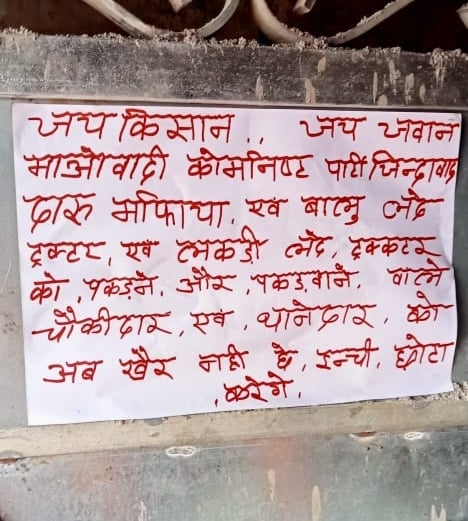 जय किसान .. जय जवान
माओवादी कोमनिष्ट पार्टी जिन्दावाद
दारू माफिया, एवं बालु लोद
ट्रक्टर, एवं लकडी लोद, ट्रक्कटर
को, पकडने, और, पकड़वाने, वाले
चौकीदार, एवं, थानेदार, को
अब खैर नही है, इन्ची, छोटा
करेगे,